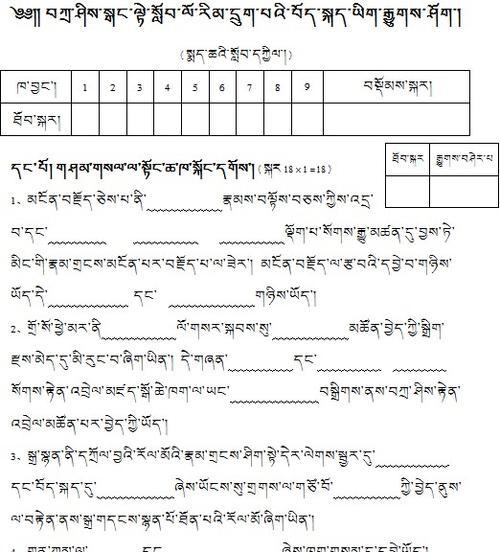 ༄༅།། བཀྲ་ཤིས་སྒང་ལྟེ་སློབ་ལོ་རིམ་དྲུག་པའི་བོད་སྐད་ཡིག་རྒྱུགས་ཤོག །
(སྨད་ཆའི་སློབ་དཀྱིལ།)
ཁ་བྱང་། 1 2 3 4 5 6 7 8 9 བསྡོམས་སྐར།
ཐོབ་སྐར།
ཐོབ་སྐར རྒྱུགས་བཤེར་པ
དང་པོ། གཤམ་གསལ་ལ་སྟོང་ཆ་ཁ་སྐོང་དགོས། (སྐར 18×1=18)
1、མངོན་བརྗོད་ཅེས་པ་ནི་ རྣམས་བལྟོས་བཅས་ཀྱིས་འདྲ་
བ་དང་ ལྡོག་པ་སོགས་རྒྱུ་མཚན་དུ་བྱས་ཏེ་
མིང་གི་རྣམ་གྲངས་མངོན་པར་བརྗོད་པ་ལ་ཟེར། མངོན་བརྗོད་ལ་རྩ་བའི་དབྱེ་བ་གཉིས་
ཡོད་དེ་ དང་ གཉིས་ཡོད།
2、གྲོ་སོ་ཕྱེ་མར་ནི་ ལོ་གསར་སྐབས་སུ་ མཚོན་བྱེད་ཀྱི་སྒྲིག་
རྫས་མེད་དུ་མི་རུང་བ་ཞིག་ཡིན། དེ་གཞན་ དང་
སོགས་རྟེན་འབྲེལ་མཛད་སྒོ་ཆེ་ཁག་ལ་ཡང་ བསྒྲིགས་ནས་བཀྲ་ཤིས་རྟེན་
འབྲེལ་མཚོན་པར་བྱེད་ཀྱི་ཡོད།
3、སྒྲ་སྙན་ནི་དཀྲོལ་བྱའི་རོལ་མོའི་རྣམ་གྲངས་ཤིག་སྟེ་དེར་ལེགས་སྦྱར་དུ་
དང་བོད་སྐད་དུ་ ཞེས་ཡོངས་སུ་གྲགས་ལ་གཙོ་བོ་ ཀྱི་བྱེད་ནུས་
ལ་བརྟེན་ནས་སྒྲ་གདངས་སྙན་པོ་ཐོན་པའི་རོལ་མོ་ཞིག་ཡིན།